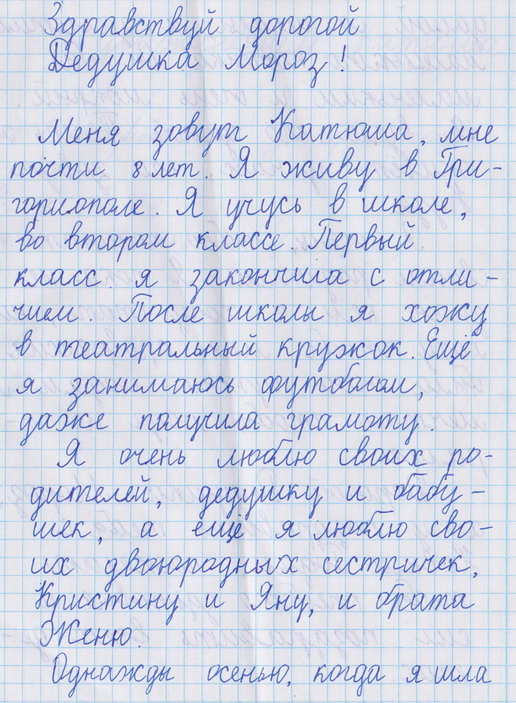 Здравствуй дорогой
Дедушка Мороз!
Меня зовут Катюша, мне
почти 8 лет. Я живу в Гри-
гориополе. Я учусь в школе,
во втором классе. Первый
класс я закончила с отли-
чием. После школы я хожу
в театральный кружок. Ещё
я занимаюсь футболом,
даже получила грамоту.
Я очень люблю своих ро-
дителей, дедушку и бабу-
шек, а ещё я люблю сво-
их двоюродных сестричек,
Кристину и Яну, и брата
Женю.
Однажды осенью, когда я шла